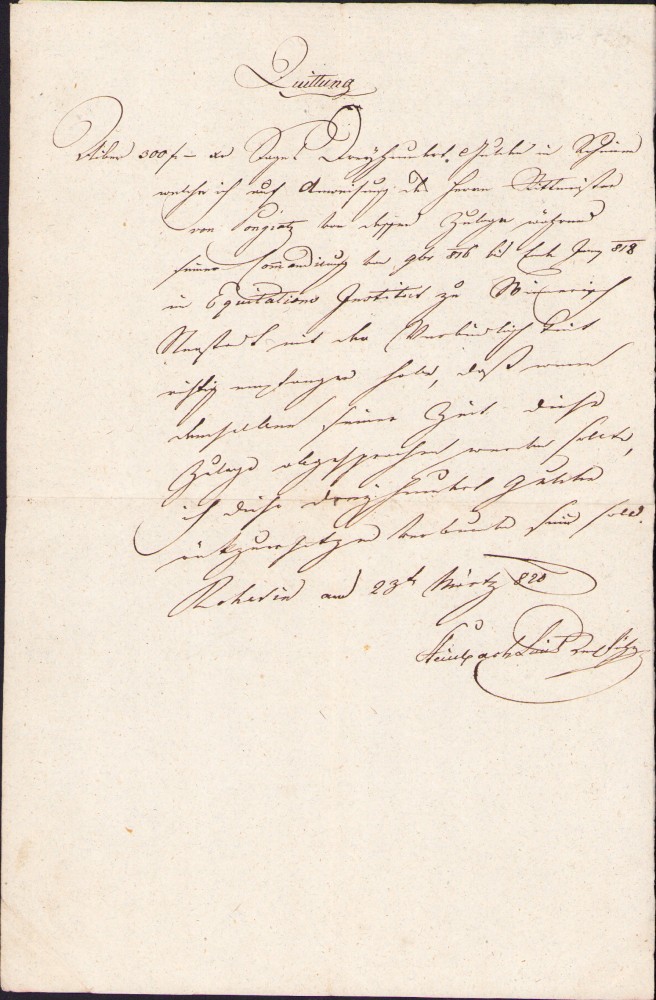 Quittung
Über 300 f – xr Sage: Dreyhundert Gulden in Scheinen
welche ich auf Anweisung des Herrn Rittmeister
von Pongratz von dessen Zulage während
seiner Comandirung von 9br 816 bis Ende Juny 818
in Equitations Institut zu Wienerisch
Neustadt mit der Verbindlichkeit
richtig empfangen habe, daß wenn
demselben seiner Zeit diese
Zulage abgesprochen werden sollte,
ich diese dreyhundert Gulden
rückzuersetzen verbunden sein soll.
am 23t Märtz 820